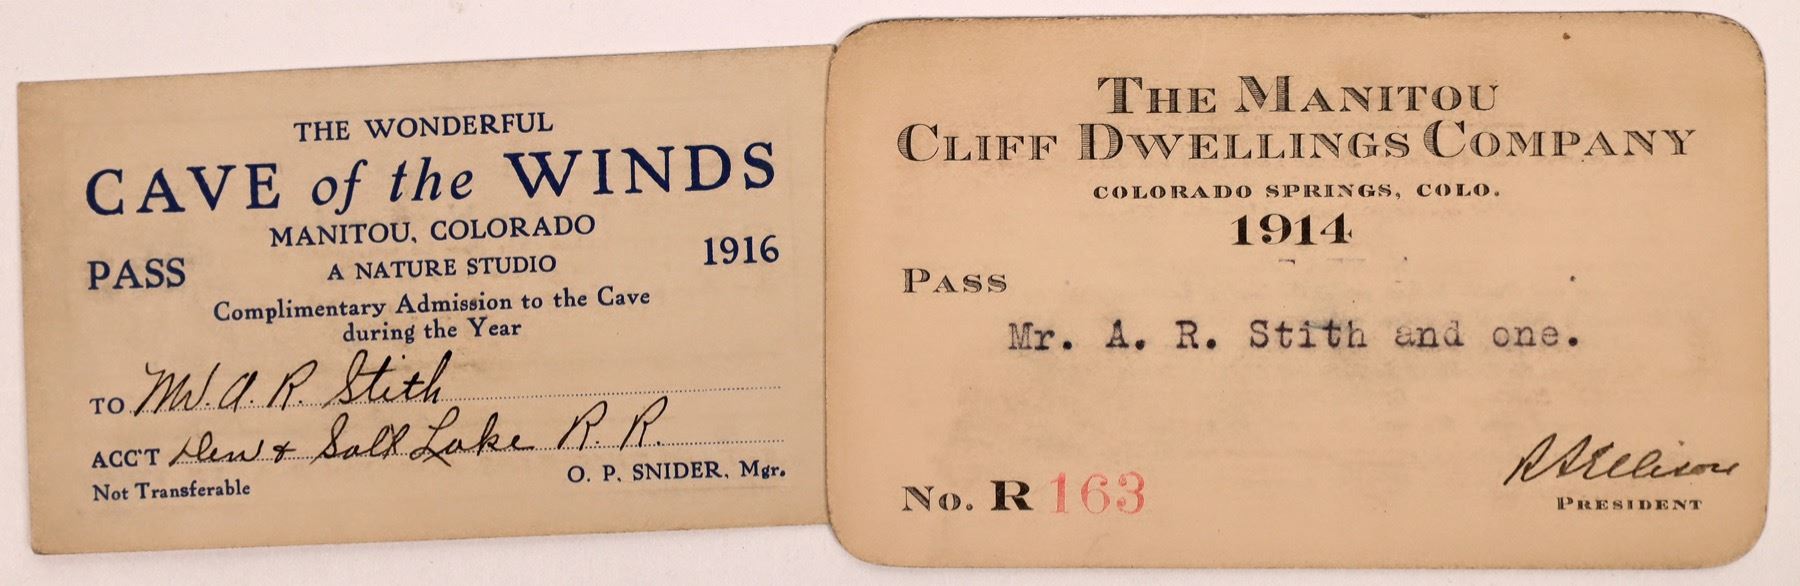 THE WONDERFUL
CAVE of the WINDS
MANITOU, COLORADO
PASS
1916
A NATURE STUDIO
Complimentary Admission to the Cave
during the Year
TO Mr. A. R. Stith
ACC'T Den & Salt Lake R. R.
Not Transferable
O. P. SNIDER, Mgr.
THE MANITOU
CLIFF DWELLINGS COMPANY
COLORADO SPRINGS, COLO.
1914
PASS
Mr. A. R. Stith and one.
No. R 163
PRESIDENT